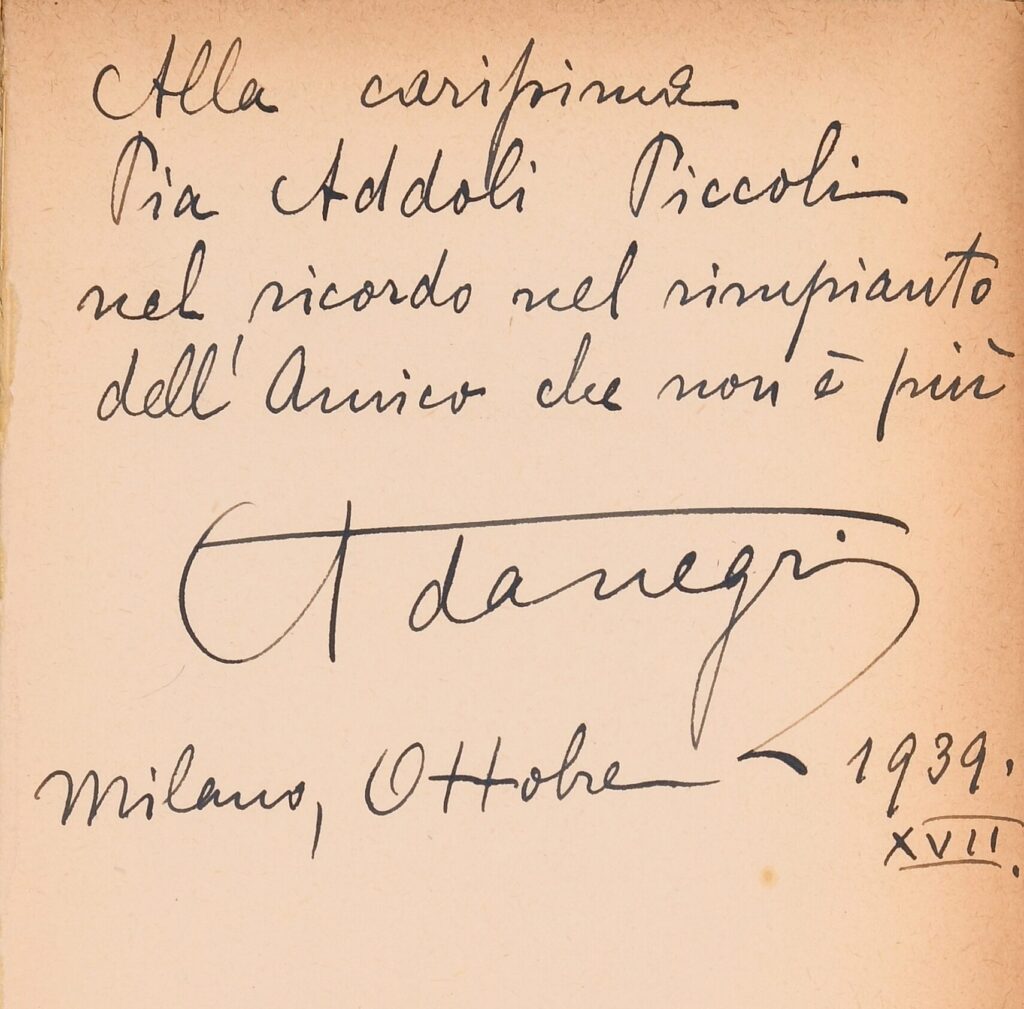 Alla carissima
Pia Addoli Piccoli
nel ricordo nel rimpianto
dell'Amico che non è più
Ada Negri
Milano, Ottobre - 1939.
XVII.